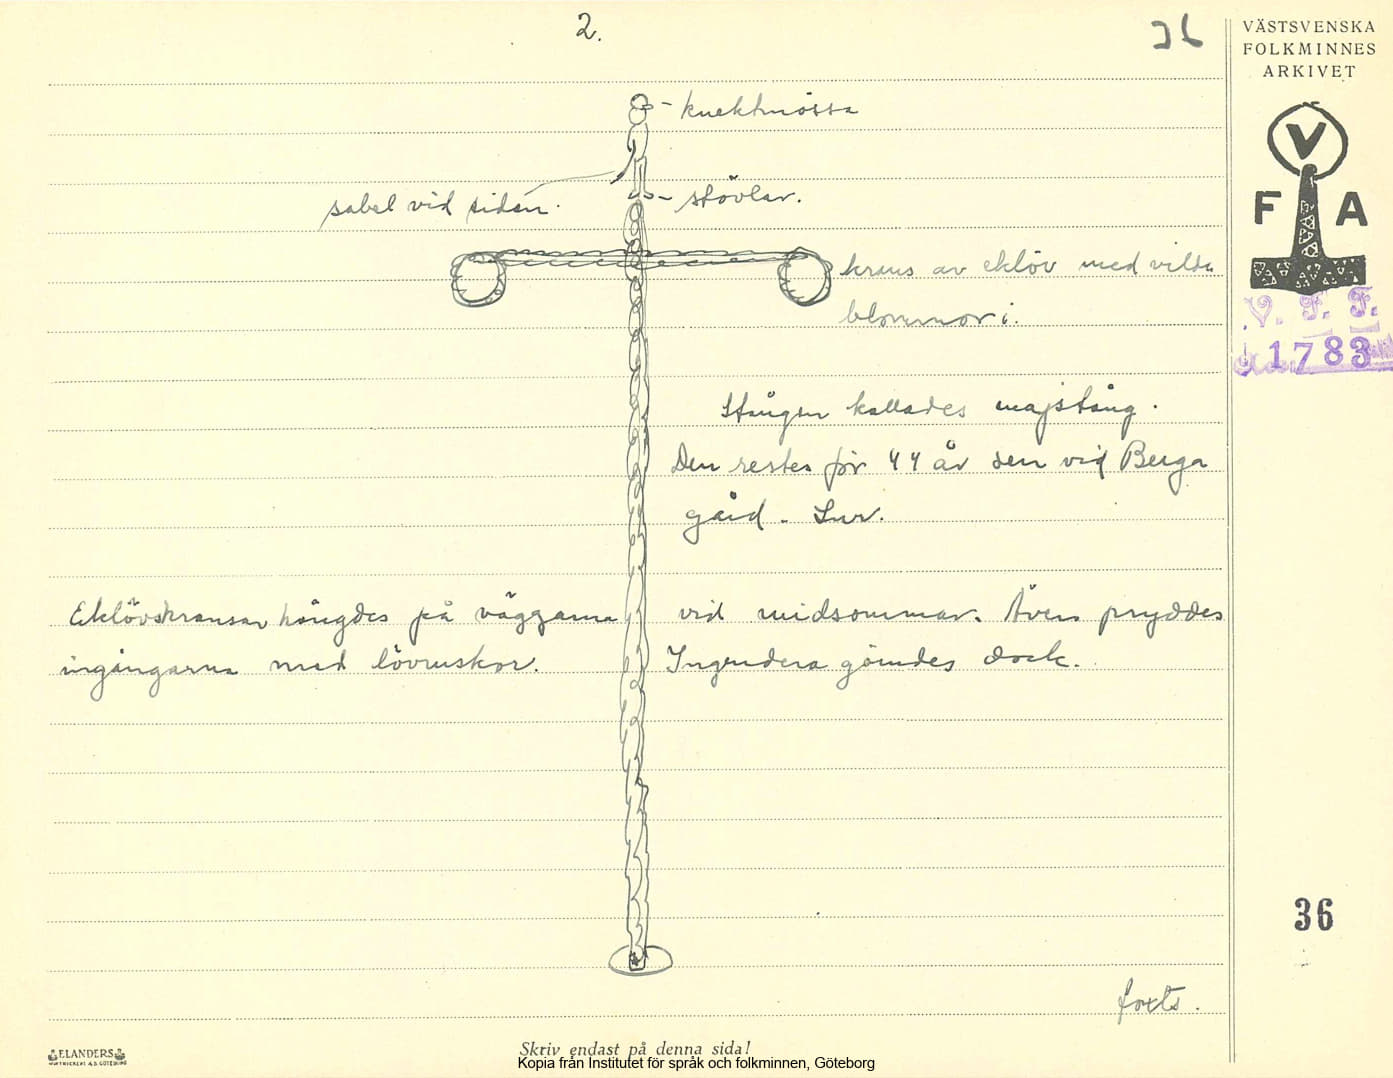 2.
36
VÄSTSVENSKA
FOLKMINNES
ARKIVET
V
F A
V. F. F.
1783
knektmössa
sabel vid sidan.
stövlar.
krans av eklöv med vilda
blommor i.
Stången kallades majstång.
Den restes för 44 år sen vid Berga
gård. Lur.
Eklövskransar hängdes på väggarna vid midsommar. Även pryddes
ingångarna med lövruskor. Ingendera gömdes dock.
36
forts.
ELANDERS
Skriv endast på denna sida!
Kopia från Institutet för språk och folkminnen, Göteborg